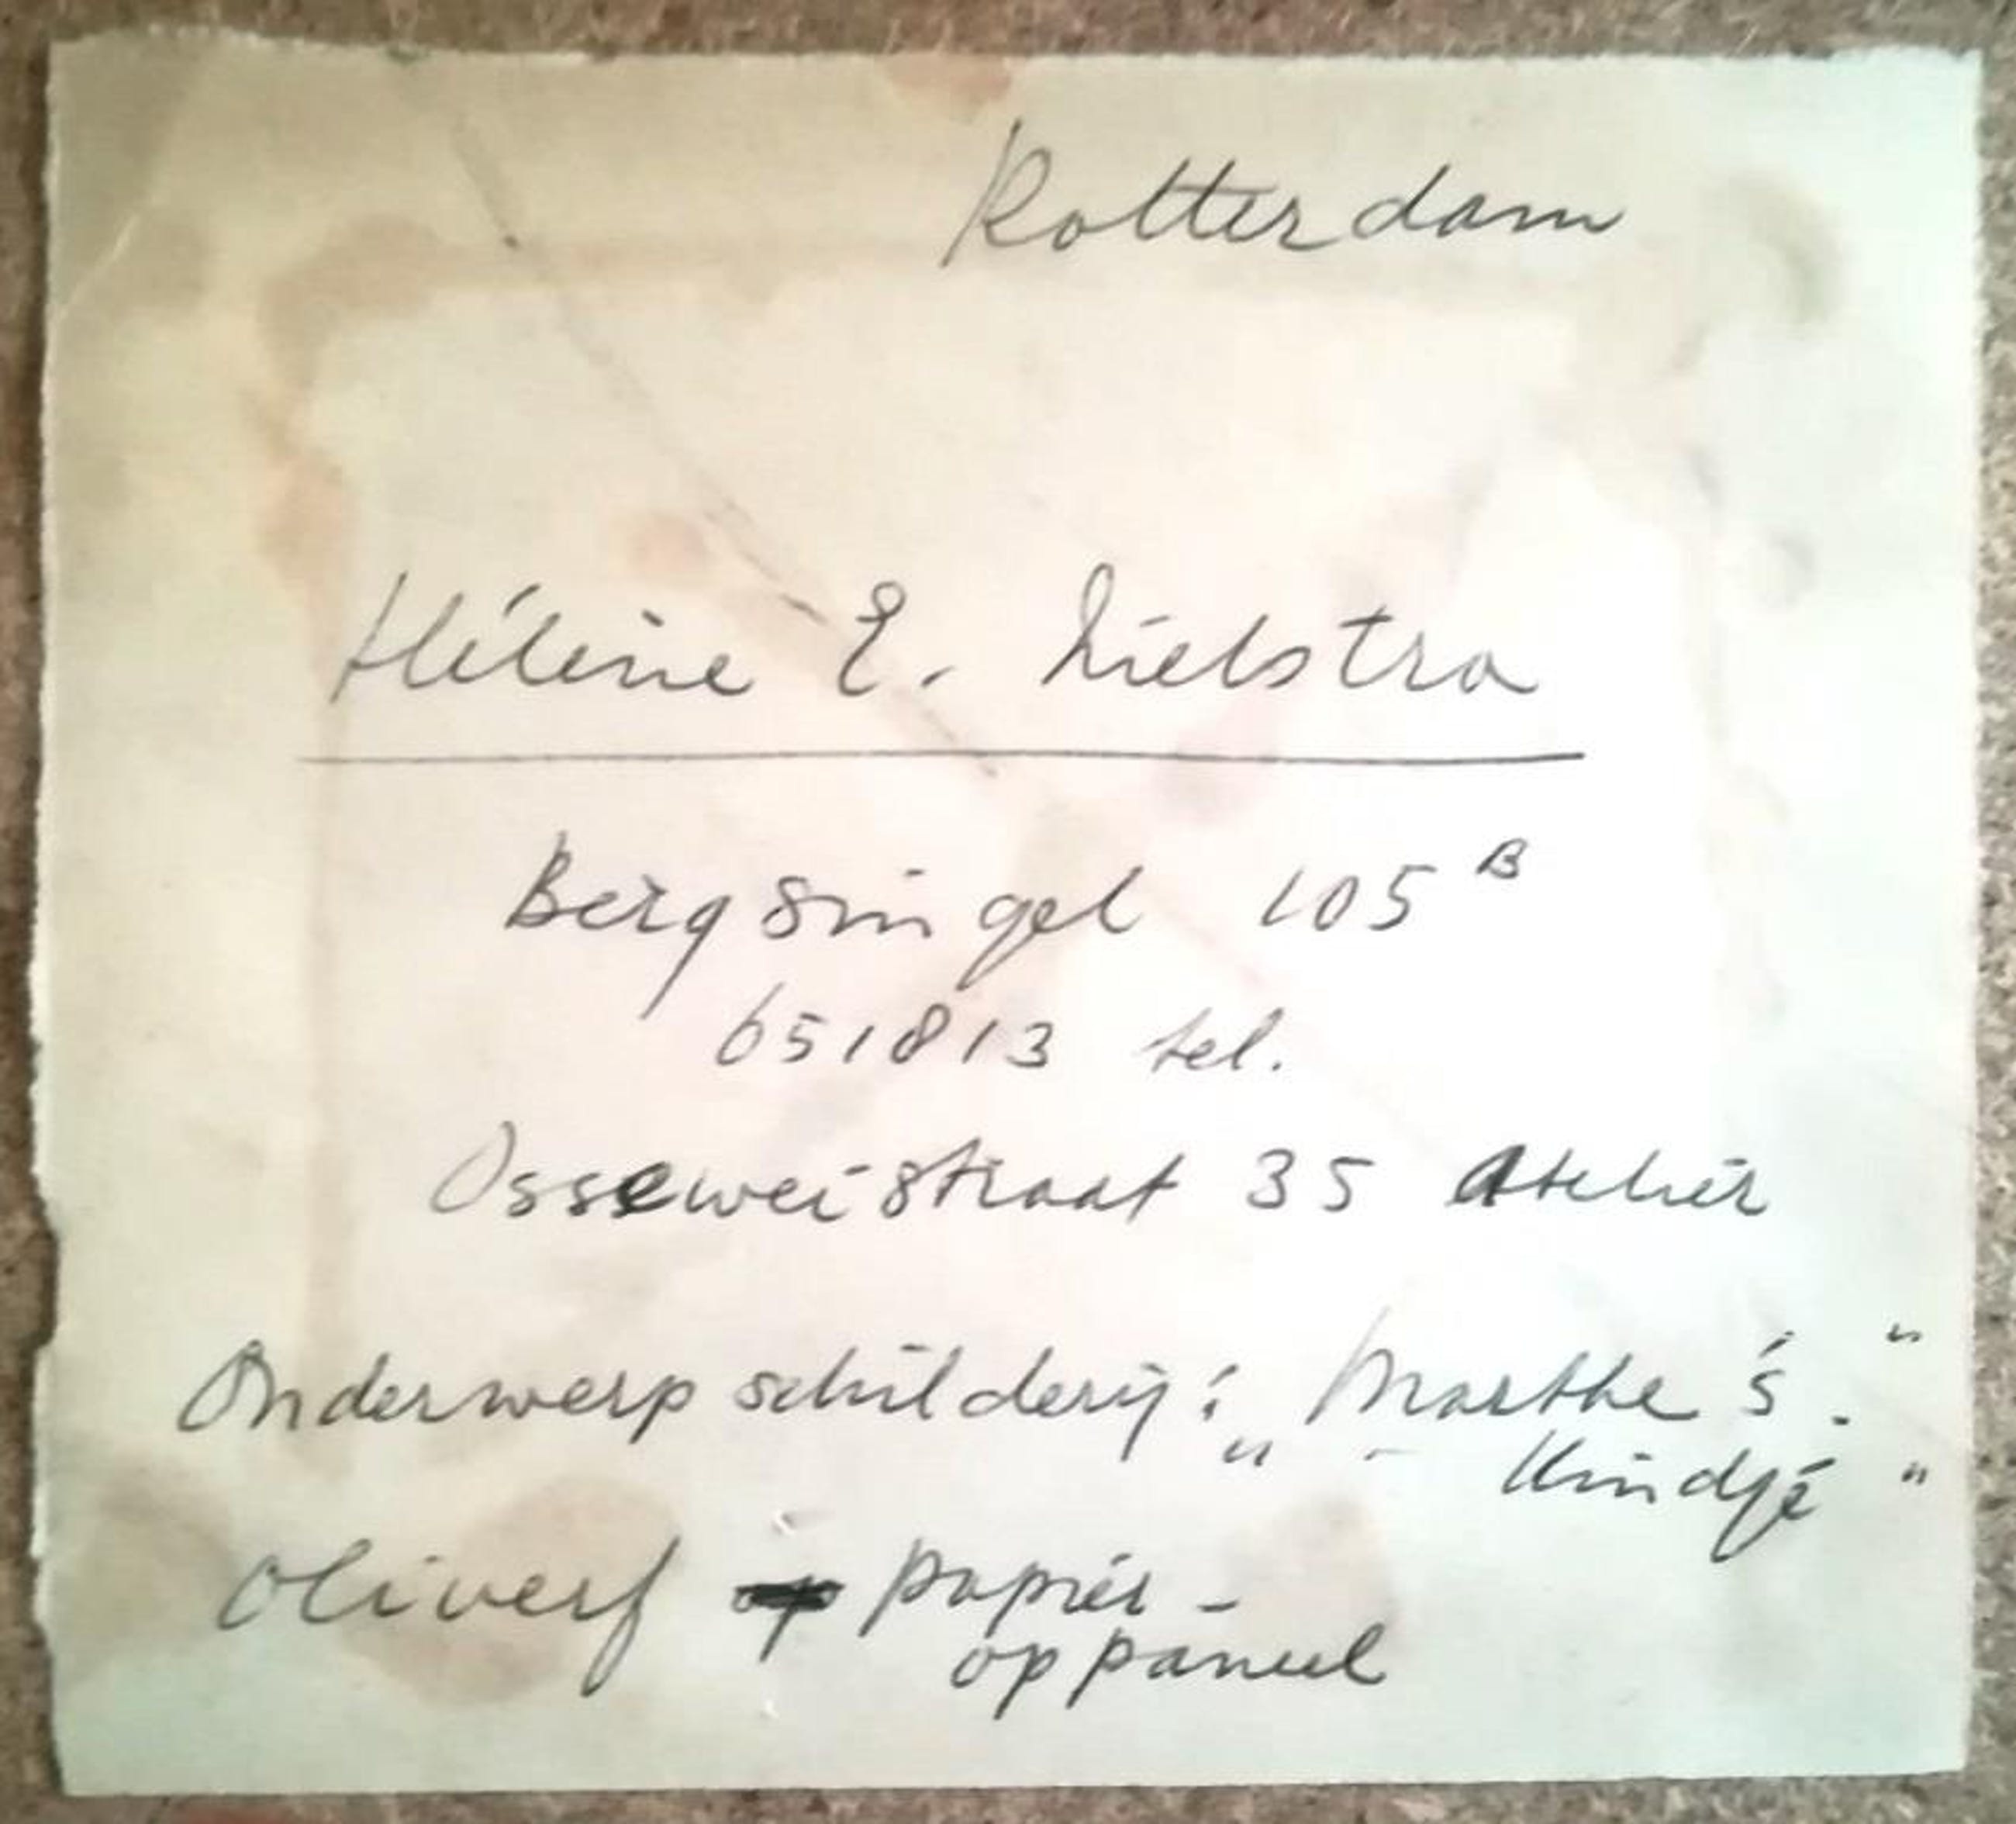 Rotterdam
Hélène E. Lielstra
Bergsingel 105 B
651813 tel.
Osseweistraat 35 Atelier
Onderwerp schilderij: „Marthe's."
„ - Kindje"
Oliverf op papier -
op paneel